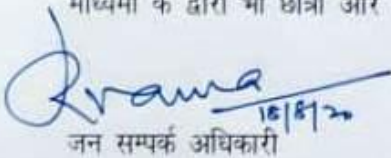 माध्यमों के द्वारा भी छात्रों और
18/8/20
जन सम्पर्क अधिकारी